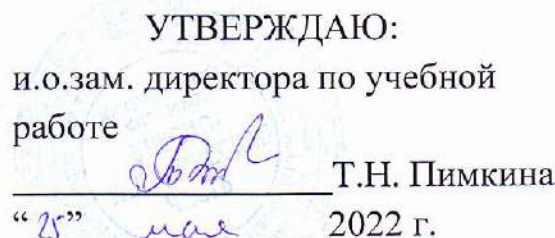 УТВЕРЖДАЮ:
и.о.зам. директора по учебной
работе
Т.Н. Пимкина
“ 25” мая 2022 г.